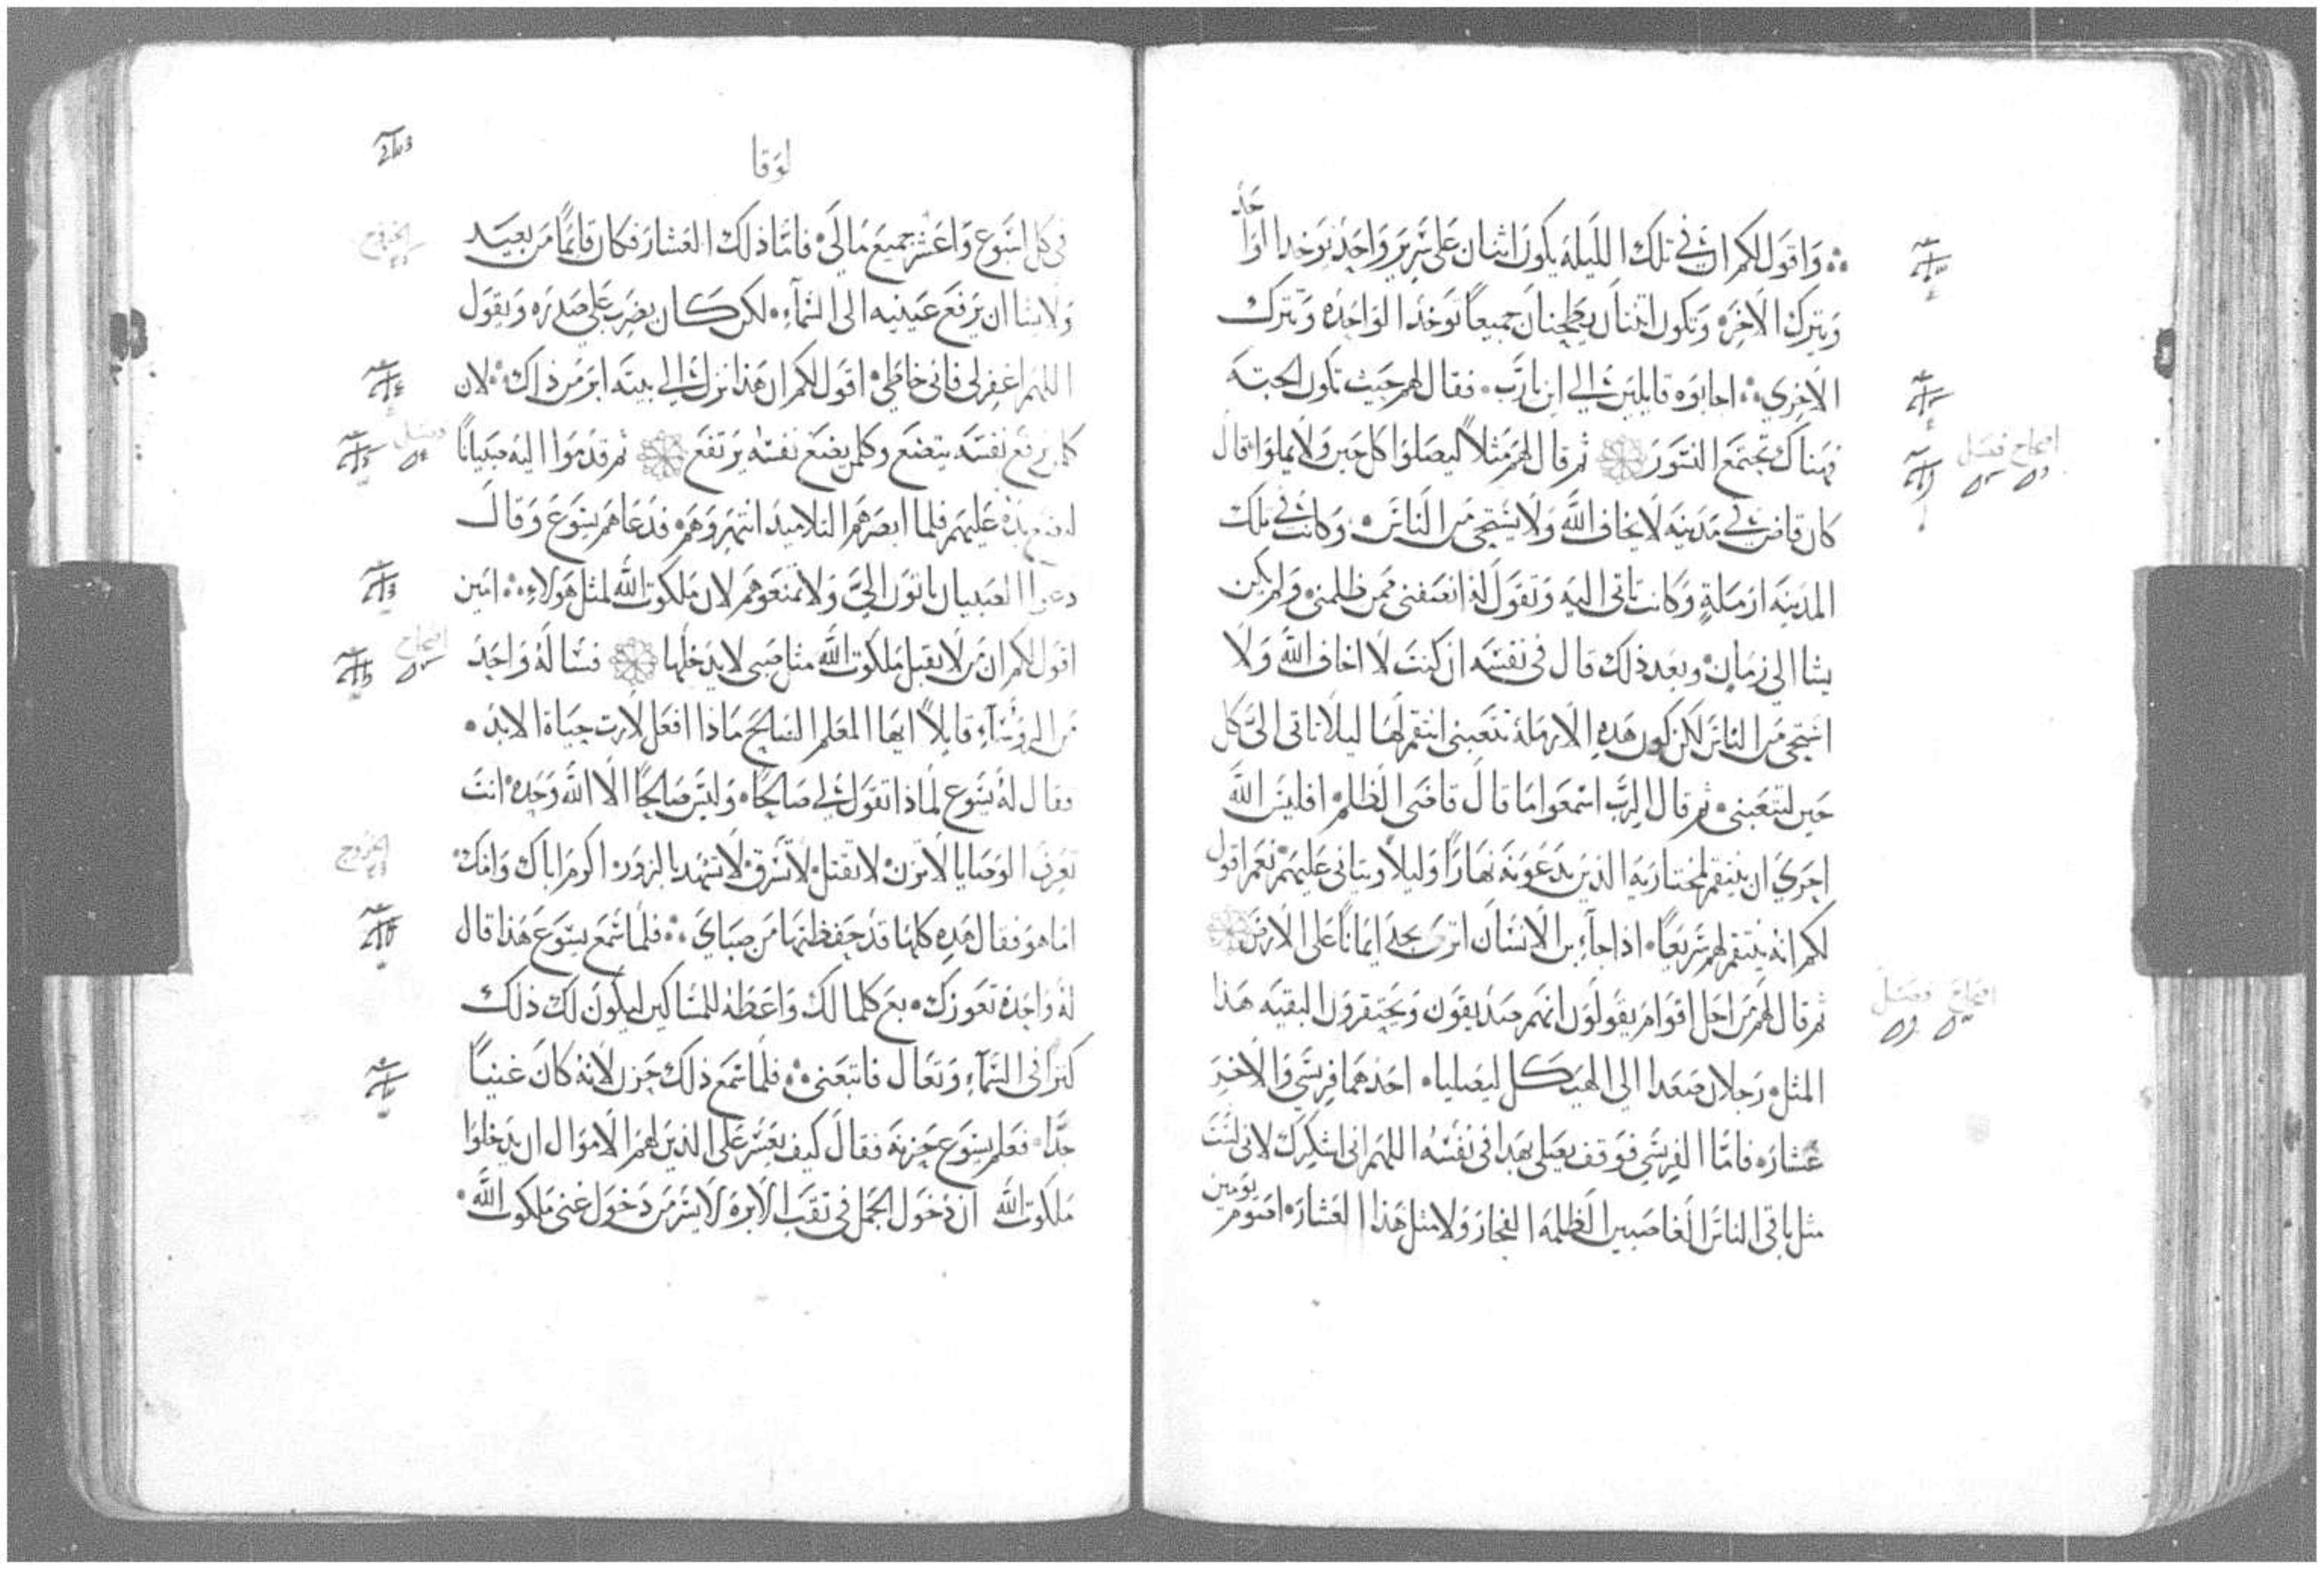 واقول لكم ان في تلك الليله يكون اثنان على سرير واحد يوخد الواحد
ويترك الاخر ٠ وتكون اثنتان يطحنان جميعاً توخد الواحده وتترك
الاخرى ٠ اجابوه قايلين الي اين يارب ٠ فقال لهم حيث تكون الجته
فهناك تجتمع النسور ثم قال لهم مثلاً ليصلوا كل حين ولا يملوا قال
كان قاض في مدينه لا يخاف الله ولا يستحي من الناس ٠ وكانت في تلك
المدينه ارملةٍ وكانت تاتي اليه وتقول له انصفني ممن ظلمني ولم يكن
يشا الى زمان ٠ وبعد ذلك قال في نفسه ان كنت لا اخاف الله ولا
استحي من الناس لكن لكون هذه الارملة تتعبني انتقم لها ليلا تاتي اليّ كل
حين لتتعبني ٠ ثم قال الرب اسمعوا ما قال قاضي الظلم ٠ افليس الله
احري ان ينتقم لمختاريه الذين يدعونه نهاراً وليلاً ويتاني عليهم ٠ نعم اقول
لكم انه ينتقم لهم سريعاً ٠ اذا جاء بن الانسان اترى يجد ايماناً على الارض
ثم قال لهم من اجل اقوام يقولون انهم صديقون ويحتقرون البقيه هذا
المثل ٠ رجلان صعدا الي الهيكل ليصليا ٠ احدهما فريسي والاخر
عشار ٠ فاما الفريسي فوقف يصلي بهدا في نفسه اللهم اني اشكرك لاني لست
مثل باقي الناس الغاصبين الظلمه الفجار ولا مثل هذا العشار ٠ اصوم يومين
لوقا
في كل اسبوع واعشر جميع مالي ٠ فاما ذلك العشار فكان قائماً من بعيد
ولا يشا ان يرفع عينيه الى السماء ٠ لكن كان يضرب على صدره ويقول
اللهم اغفر لي فاني خاطي ٠ اقول لكم ان هذا نزل الي بيته ابر من ذاك ٠ لان
كلمن يرفع نفسه يتضع وكلمن يضع نفسه يرتفع ثم قدموا اليه صبياناً
ليضع يده عليهم فلما ابصرهم التلاميد انتهروهم ٠ فدعاهم يسوع وقال
دعوا الصبيان ياتون اليّ ولا تمنعوهم لان ملكوت الله لمثل هولاء ٠ امين
اقول لكم ان من لا يقبل ملكوت الله مثل صبي لا يدخلها فساله واحد
من الروساء قايلاً ايها المعلم الصالح ماذا افعل لارث حياة الابد ٠
فقال له يسوع لماذا تقول لي صالحًا ٠ وليس صالحًا الا الله وحده ٠ انت
تعرف الوصايا لا تزن ٠ لا تقتل ٠ لا تسرق ٠ لا تشهد بالزور ٠ اكرم اباك وامك ٠
اما هو فقال هذه كلها قد حفظتها من صباي ٠ فلما سمع يسوع هذا قال
له واحدة تعوزك ٠ بع كلما لك واعطه للمساكين ليكون لك ذلك
كنزًا في السماء وتعال فاتبعني ٠ فلما سمع ذلك حزن لانه كان غنيًا
جدًا ٠ فعلم يسوع حزنه فقال كيف يعسر على الذين لهم الاموال ان يدخلوا
ملكوت الله ان دخول الجمل في ثقب الابرة لايسر من دخول غني ملكوت الله ٠